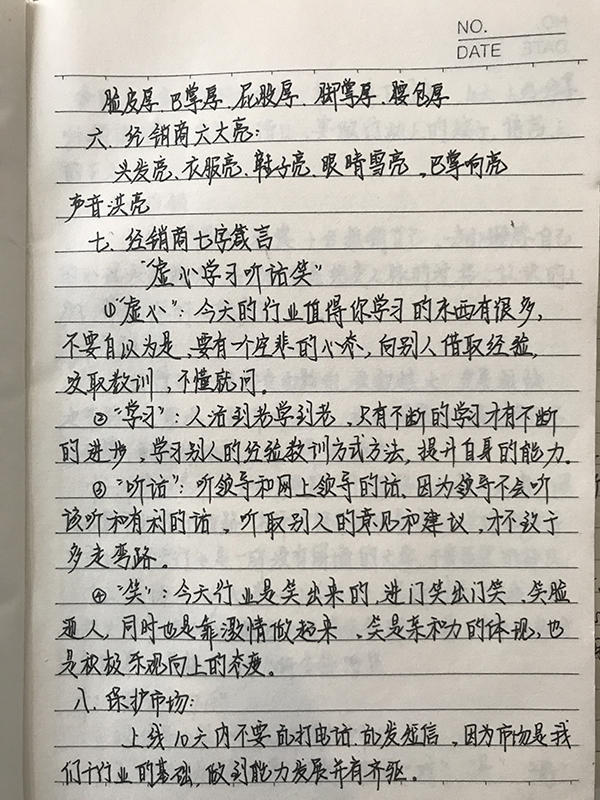 NO.
DATE
脸皮厚、巴掌厚、屁股厚、脚掌厚、腰包厚
六、经销商六大亮:
头发亮、衣服亮、鞋子亮、眼睛雪亮、巴掌响亮
声音洪亮
七、经销商七字箴言
"虚心学习听话笑"
①"虚心":今天的行业值得你学习的东西有很多,
不要自以为是、要有一个空杯的心态,向别人借取经验,
吸取教训,不懂就问。
②"学习":人活到老学到老,只有不断的学习才有不断
的进步,学习别人的经验教训方式方法,提升自身的能力。
③"听话":听领导和网上领导的话,因为领导不会听
该听和有利的话,听取别人的意见和建议,才不致于
多走弯路。
④"笑":今天行业是笑出来的,进门笑出门笑、笑脸
迎人,同时也是靠激情做起来、笑是亲和力的体现,也
是积极乐观向上的态度。
八、保护市场:
上线10天内不要乱打电话、乱发短信,因为市场是我
们行业的基础,做到能力发展并有齐驱。